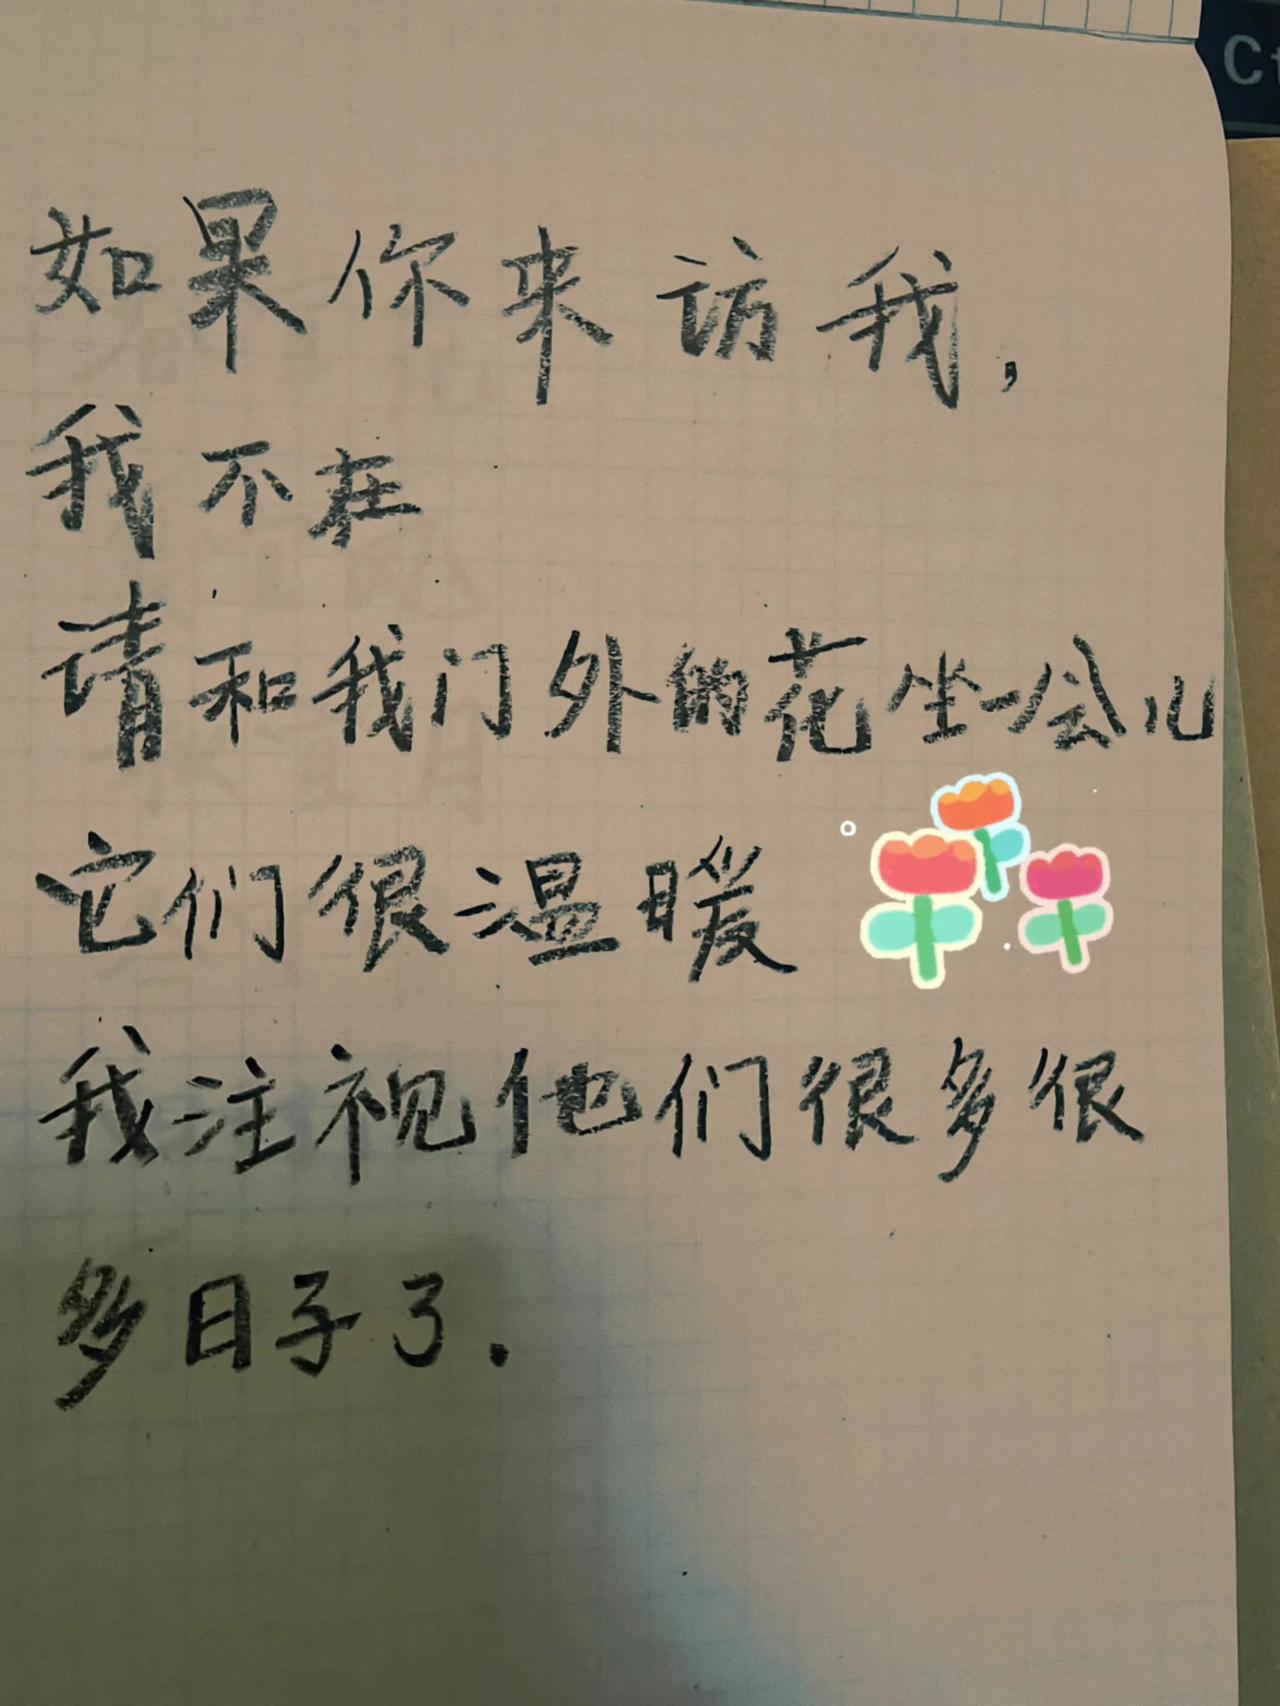 如果你来访我,
我不在
请和我门外的花坐一会儿
它们很温暖
我注视他们很多很
多日子了.